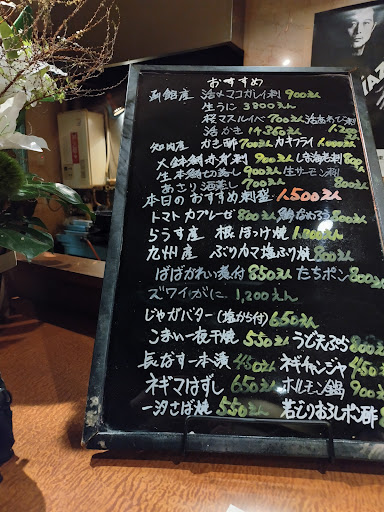 おすすめ
函館産 活〆マコガレイ刺 900えん
生うに 3800えん
桜マスルイベ 700えん 活あわび刺
活かき 1ヶ360えん 1,200
知内産 かき酢 700えん カキフライ 1,000えん
900えん 800
生本鮪切落し 900えん 生サーモン刺
あさり酒蒸し 700えん 800えん
本日のおすすめ刺盛 1,500えん
トマトカプレーゼ 800えん 鯛なめろう 800えん
らうす産 根ぼっけ焼 1,800えん
九州産 ぶりカマ塩ふり焼 800えん
ばばがれい煮付 850えん たちポン 800えん
ズワイがに 1,200えん
じゃがバター(塩から付) 650えん
こまい一夜干焼 550えん うど天ぷら 800
長なす一本漬 450えん ネギチャンジャ 450
ネギマはずし 650えん ホルモン鍋 900
一汐さば焼 550えん 若どりおろしポン酢 8